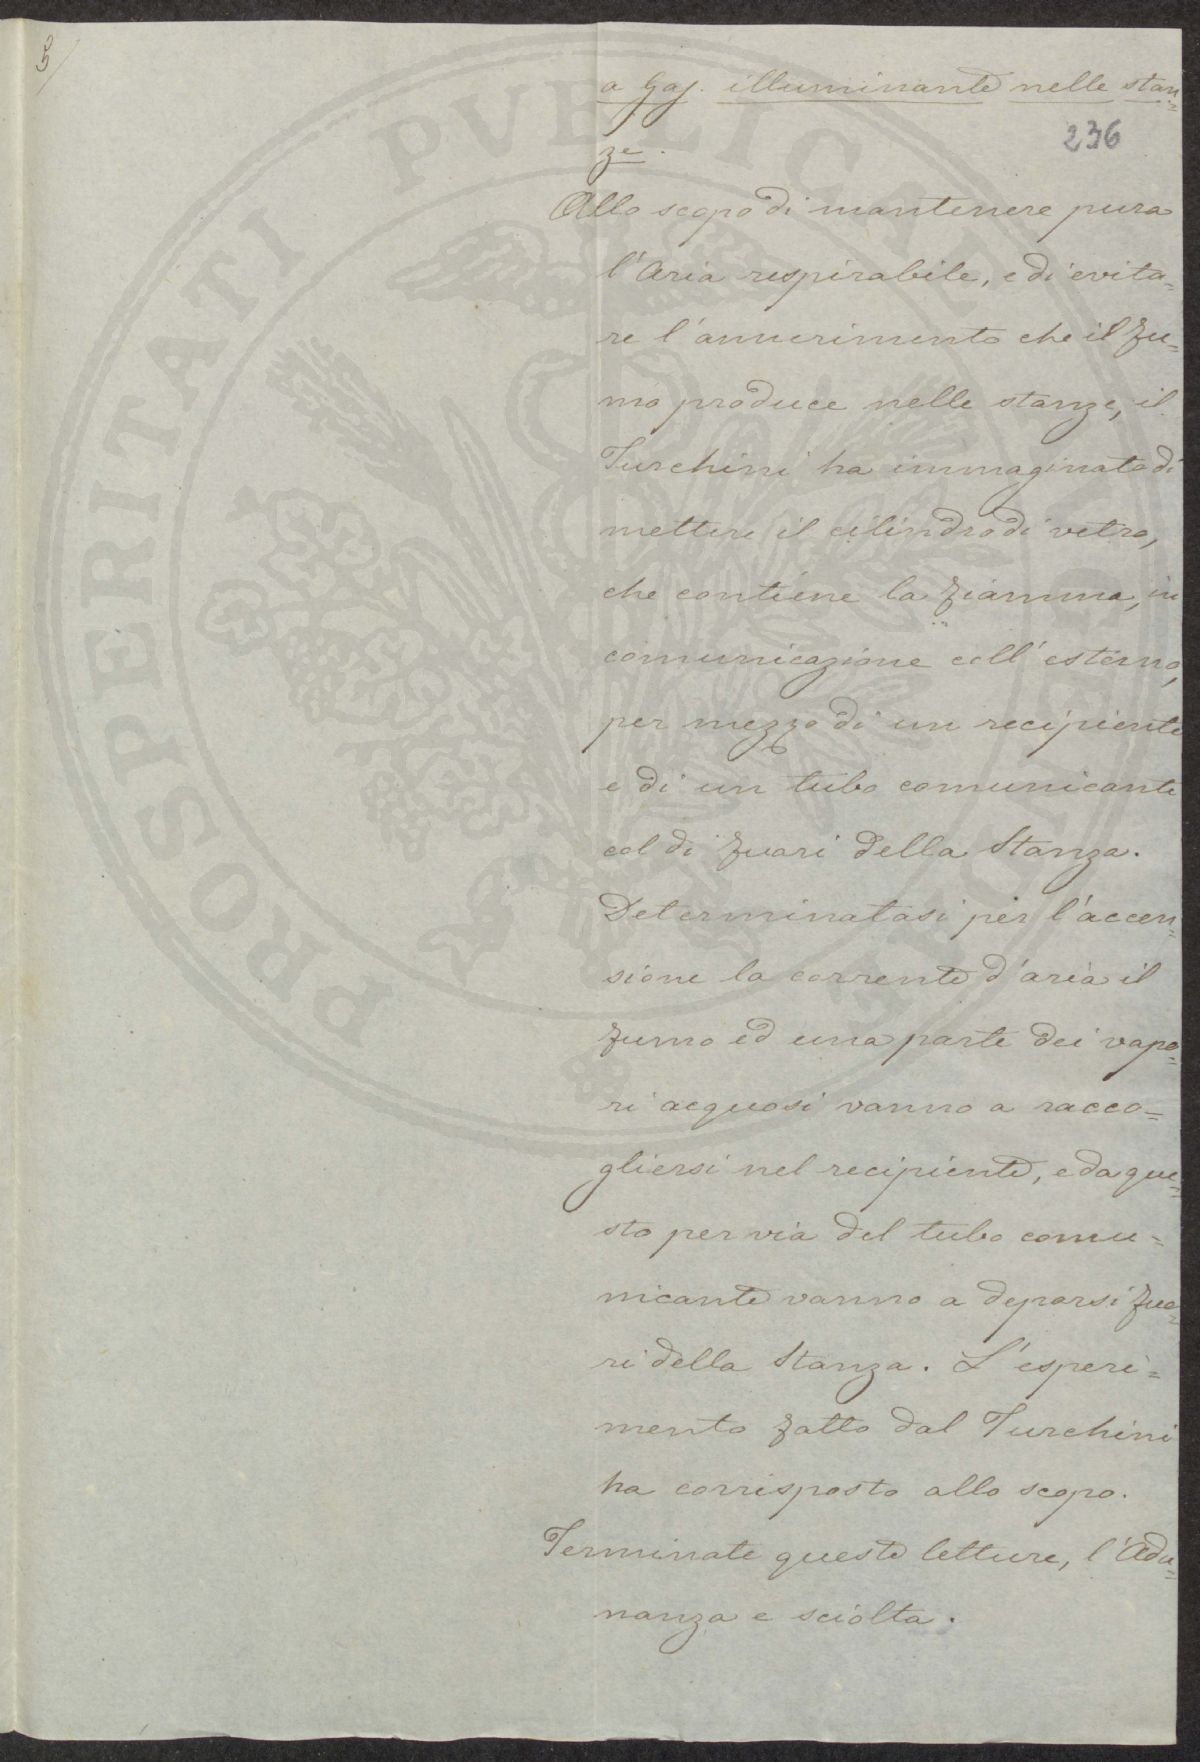 5/
a Gas. illuminante nelle stan=
236
ze.
Allo scopo di mantenere pura
l'Aria respirabile, e di evita=
re l'annerimento che il fu=
mo produce nelle stanze, il
Turchini ha immaginato di
mettere il cilindro di vetro,
che contiene la fiamma, in
comunicazione coll'esterno,
per mezzo di un recipiente
e di un tubo comunicante
col di fuori della Stanza.
Determinatasi per l'accen=
sione la corrente d'aria il
fumo ed una parte dei vapo=
ri acquosi vanno a racco=
gliersi nel recipiente, e da que=
sto per via del tubo comu=
nicante vanno a deporsi fuo=
ri della Stanza. L'esperi=
mento fatto dal Turchini
ha corrisposto allo scopo.
Terminate queste letture, l'Adu=
nanza e sciolta.
PROSPERITATI PVBLICAE